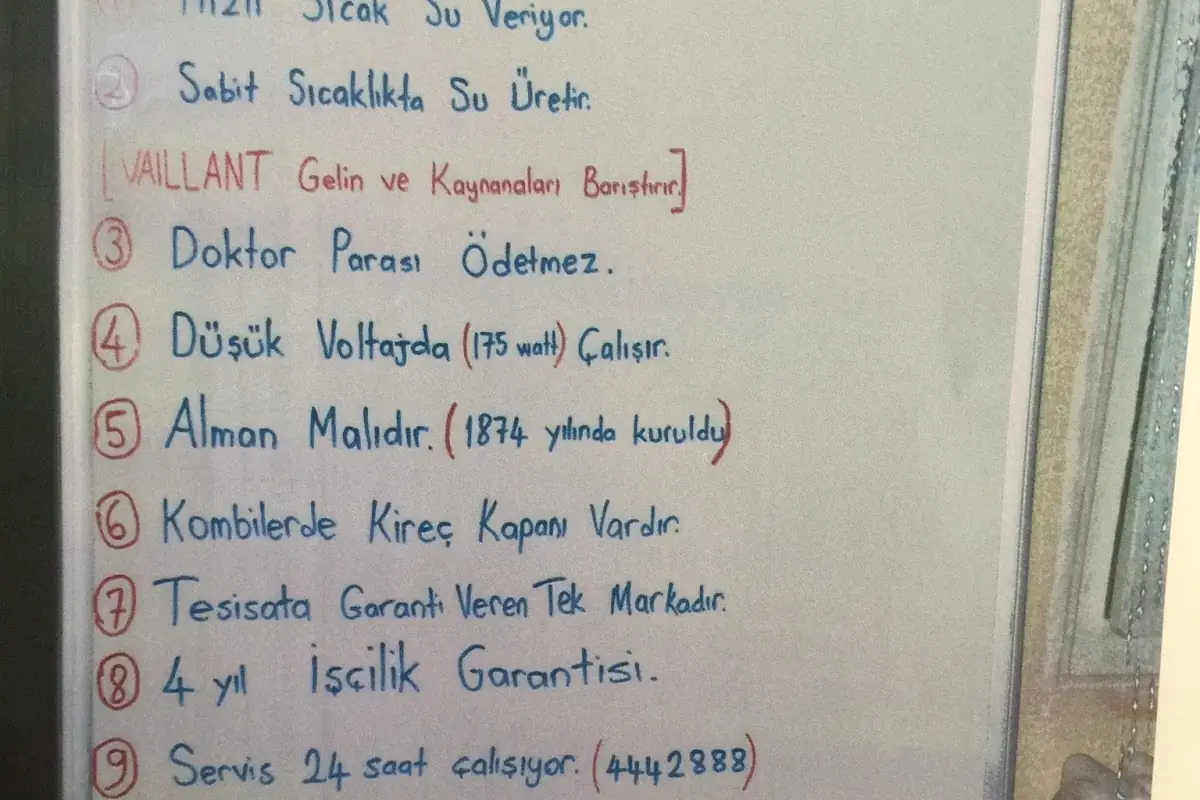 Hızlı Sıcak Su Veriyor.
2 Sabit Sıcaklıkta Su Üretir.
[VAILLANT Gelin ve Kaynanaları Barıştırır.]
3 Doktor Parası Ödetmez.
4 Düşük Voltajda (175 watt) Çalışır.
5 Alman Malıdır. (1874 yılında kuruldu)
6 Kombilerde Kireç Kapanı Vardır.
7 Tesisata Garanti Veren Tek Markadır.
8 4 yıl İşçilik Garantisi.
9 Servis 24 saat çalışıyor. (4442888)